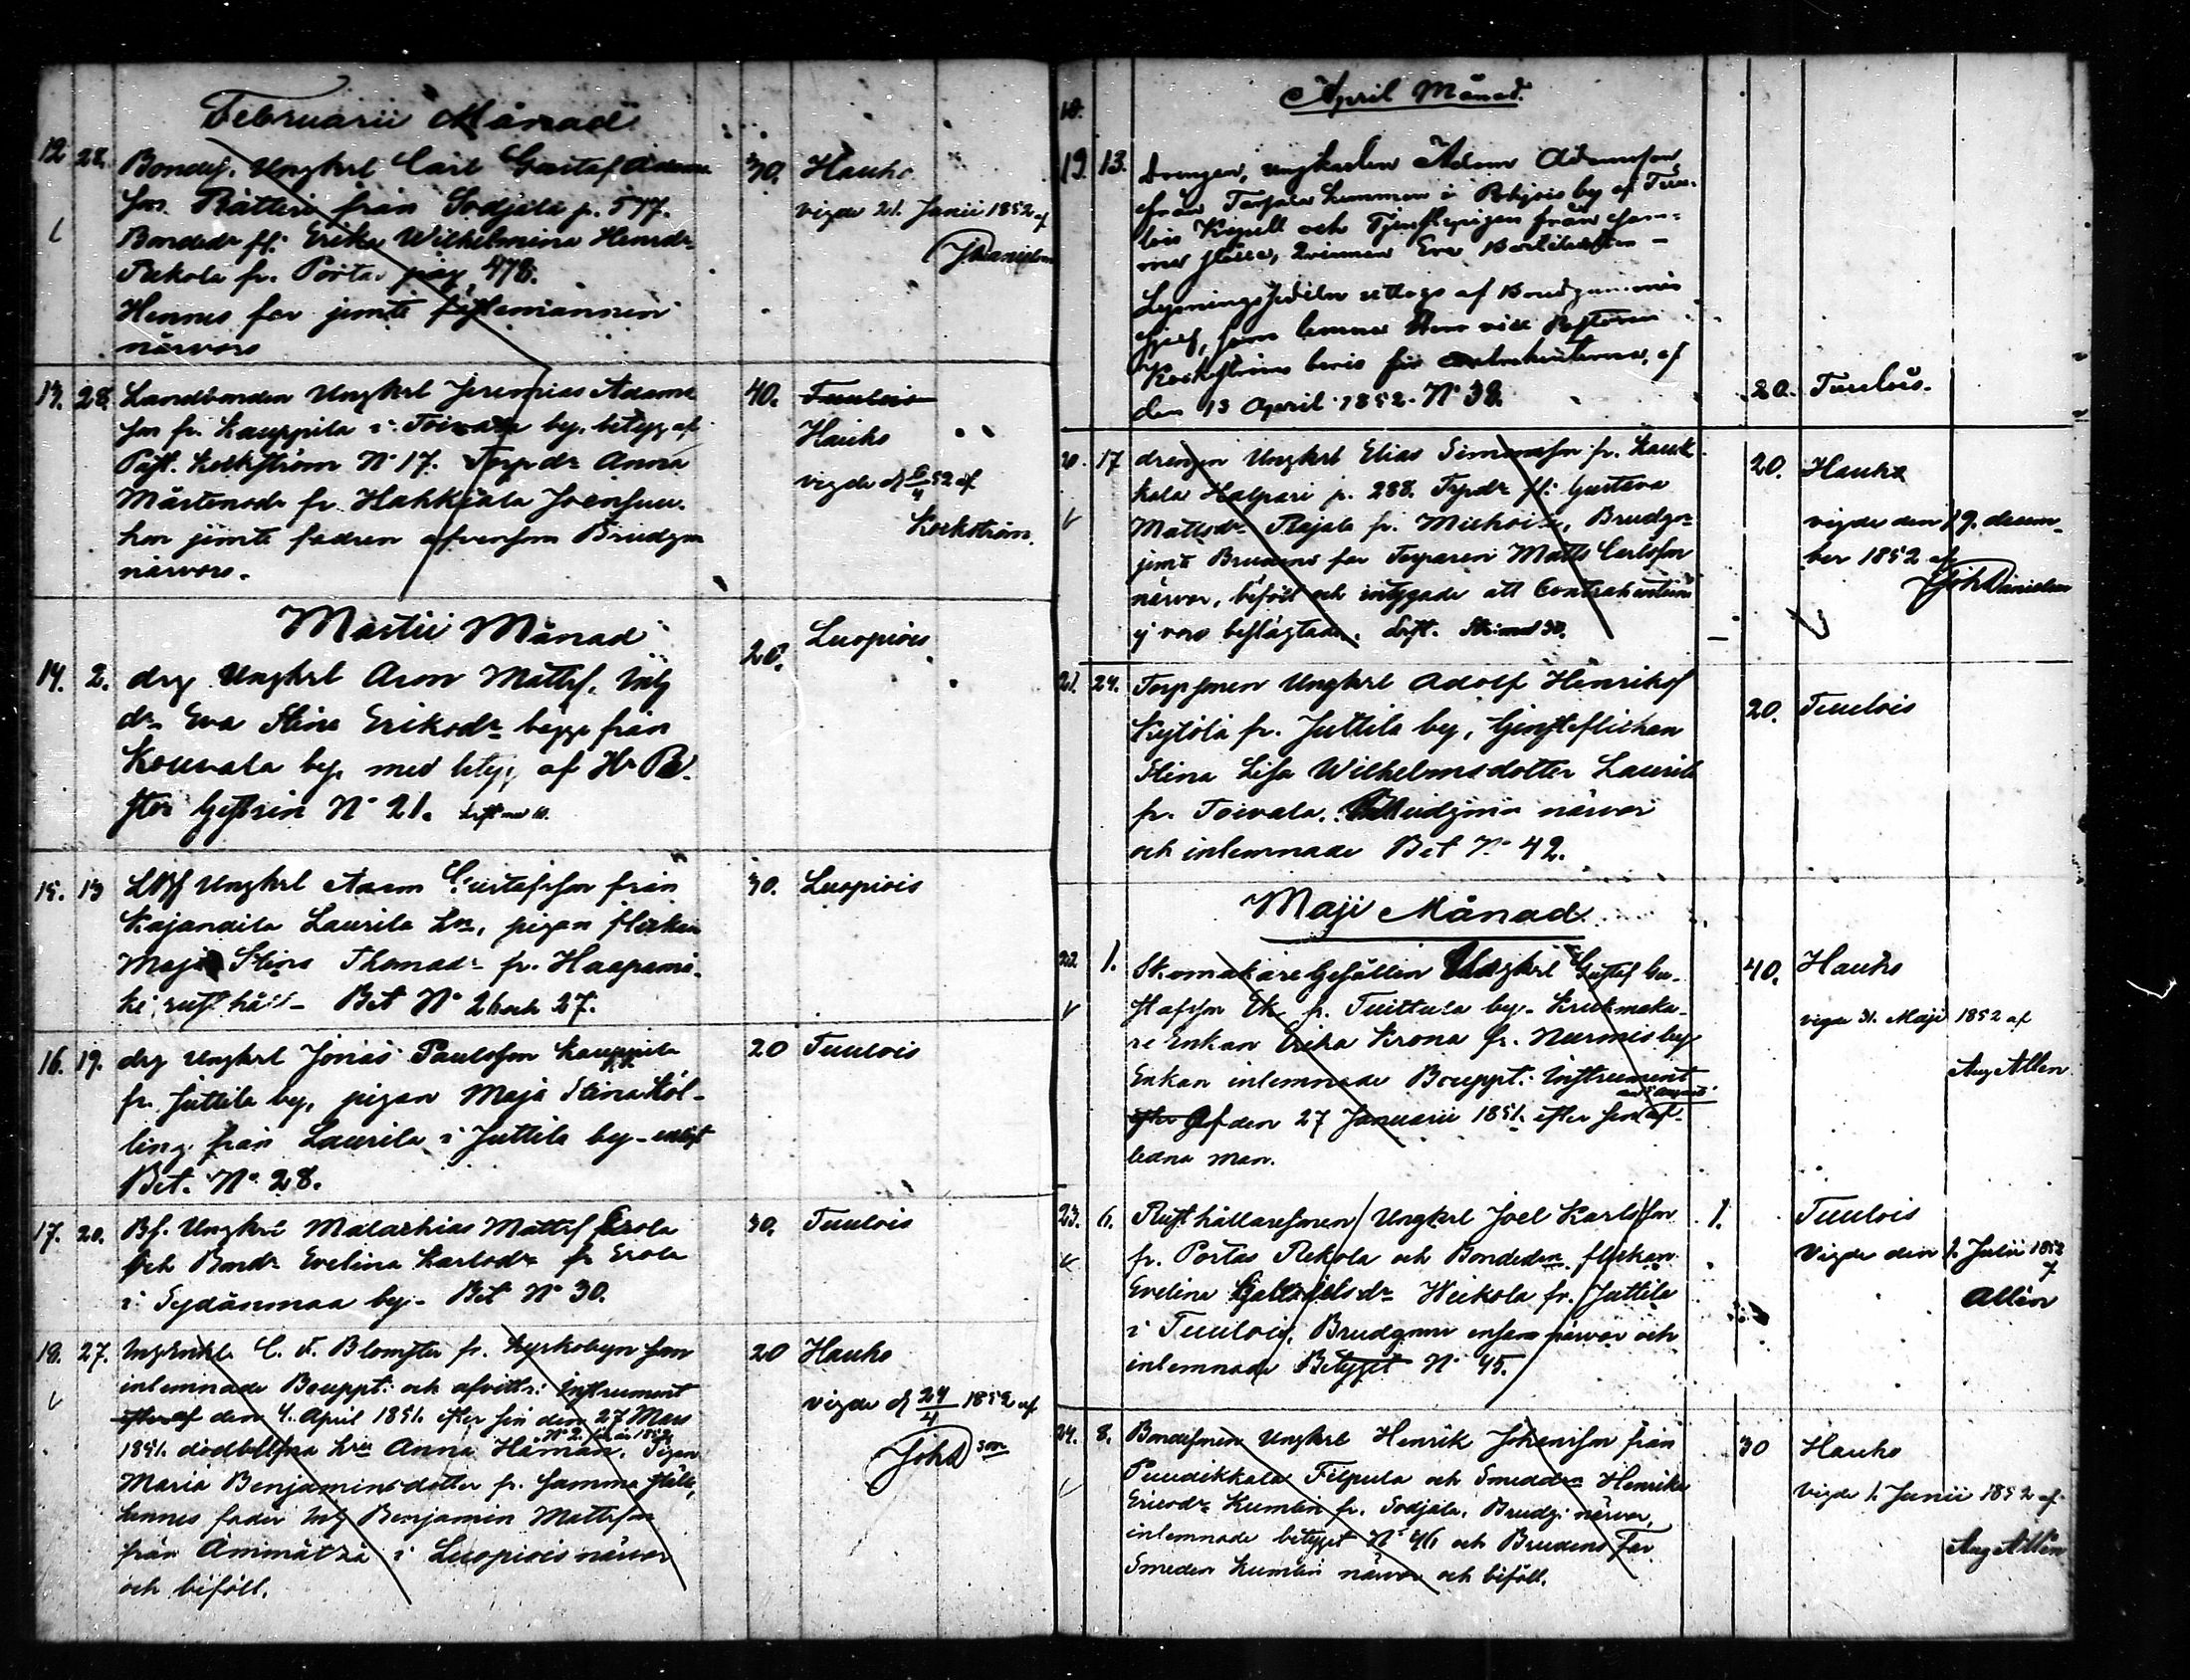 Februarii Månad
12 28. Bondes. Ungkrl Carl Gustaf Adams
son Rätteri från Sodjala p. 577.
Bondedr fl: Erika Wilhelmina Henrdr
Rekola fr. Portas pag. 478.
Hennes far jemte fästemannen
närvoro
30. Hauho
vigde 21. Junii 1852 af
JDanielson
13. 28. Landbonden Ungkrl Jeremias Adams
son fr. Kauppila i Toivala by, betyg af
Past. Keckström No 17. Torpdr Anna
Mårtensdr fr. Hahkiala Joensuu.
hon jemte fadren afvensom Brudgm
närvoro.
40. Tuulois
Hauho
vigde d 6/4 52 af
Keckström
Martii Månad
14. 2. drg Ungkrl Aron Mattss. Inh
dr. Eva Stina Eriksdr bägge från
Kouvala by, med betyg af Hr Pa-
stor Gestrin No 21.
20. Luopiois
15. 13 Ungkrl Adam Gustafsson från
Kajandila Laurila, pigan flickan
Maja Stina Thomasdr fr. Haapamä-
ki rusthåll - Bet No 26 och 27.
30. Luopiois
16. 19. drg Ungkrl Jonas Paulsson Kauppila
fr. Juttila by, pigan Maja Stina Köl-
ling från Laurila i Juttila by - enligt
Bet. No 28.
20 Tuulois
17. 20. Bs. Ungkrl Malachias Mattss Erola
och Bondr Evelina Karlsdr fr Erola
i Sydänmaa by. - Bet No 30.
30. Tuulois
18. 27. Inh Enkl. C. F. Blomster fr. Kyrkobyn som
inlemnade Bouppt: och afvittr: Instrument
efter af den 4. April 1851. efter sin den 27 Mars
1851. dödblifna hru Anna Häman. Pigan
Maria Benjaminsdotter fr. samma ställe,
hennes fader Inh Benjamin Mattsson
från Ämmätsä i Luopiois närvar
och biföll.
20 Hauho
vigde d 24/4 1852 af
JohD son
April Månad.
19. 13. Drengen, ungkarlen Adam Adamsson,
från Tarjala hemman i Pohjois by af Tuu-
lois Kapell och Tjenstepigan från sam-
ma ställe, qvinnan Eva
Lysningssedeln uttogs af Brudgummen
sjelf, som lemnar Pastoren
Keckströms bevis för Contrahenterna, af
den 13 April 1852. No 38.
20. Tuulois.
20. 17 drengen Ungkrl Elias Simonsson fr. Kauk-
kala Halpari p. 288. Trpdr fl: Gustava
Mattsdr Rajala fr. Miehoila, Brudgm
jemte Brudens far Torparen Matts Carlsson
närvar, biföll och intygade att Contrahenterne
ej voro beslägtade.
20. Hauho
vigde den 19. decem-
ber 1852 af
JohDanielson
21. 24. Torpsonen Ungkrl Adolf Henrikss
Kylölä fr. Juttila by, Ginsteflickan
Stina Lisa Wilhelmsdotter Laurila
fr. Toivala. Brudgmn närvar
och inlemnade Bet No 42.
20. Tuulois
Maji Månad
22 1. Skomakare Gesällen Ungkrl Gustaf Gu-
stafsson Ek fr. Tuittula by. Krukmaka-
re Enkan Erika Krona fr. Nurmis by
Enkan inlemnade Bouppt: Instrument
efter af den 27 Januarii 1851. efter sin af-
ledna man.
40. Hauho
vigde 31. Maji 1852 af
Aug Allén
23. 6. Rusthållaresonen Ungkrl Joel Karlsson
fr. Portas Rekola och Bondedn flickan
Evelina Heikola fr. Juttila
i Tuulois. Brudgmn ensam närvar och
inlemnade Betyget No 45.
1. Tuulois
Vigde den 1. Julii 1852
af
Allén
24. 8. Bondesonen Ungkrl Henrik Johansson från
Puudikkala Filpula och Smeddn Henrika
Ericsdr Kumlin fr. Sodjala. Brudg: närvar,
inlemnade betyget No 46 och Brudens Far
Smeden Kumlin närvar och biföll.
30 Hauho
vigde 1. Junii 1852 af
Aug Allén